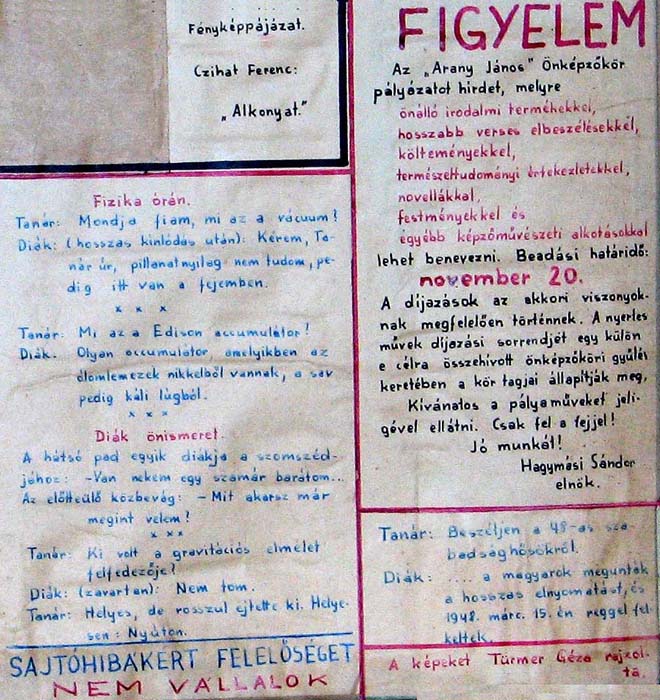 Fényképpájázat.
Czihat Ferenc:
„Alkonyat."
Fizika órán.
Tanár: Mondja fiam, mi az a vácuum?
Diák: (hosszas kinlódás után): Kérem, Ta-
nár úr, pillanatnyilag nem tudom, pe-
dig itt van a fejemben.
x x x
Tanár: Mi az a Edison accumulátor?
Diák. Olyan accumulátor, amelyikben az
ólomlemezek nikkelből vannak, a sav
pedig káli lúgból.
x x x
Diák önismeret.
A hátsó pad egyik diákja a szomszéd-
jához: -Van nekem egy szamár barátom...
Az előtteülő közbevág: - Mit akarsz már
megint velem?
x x x
Tanár: Ki volt a gravitációs elmélet
felfedezője?
Diák: (zavartan): Nem tom.
Tanár: Helyes, de rosszul ejtette ki. Helye-
sen: Nyúton.
SAJTÓHIBÁKÉRT FELELŐSÉGET
NEM VÁLLALOK
FIGYELEM
Az „Arany János" Önképzőkör
pályázatot hirdet, melyre
önálló irodalmi termékekkel,
hosszabb verses elbeszélésekkel,
költeményekkel,
természettudományi értekezletekkel,
novellákkal,
festményekkel és
egyébb képzőművészeti alkotásokkal
lehet benevezni. Beadási határidő:
november 20.
A díjazások az akkori viszonyok-
nak megfelelően történnek. A nyertes
művek díjazási sorrendjét egy külön
e célra összehívott önképzőköri gyűlés
keretében a kör tagjai állapítják meg,
Kívánalos a pályaműveket jeli-
gével ellátni. Csak fel a fejjel!
Jó munkát!
Hagymási Sándor
elnök.
Tanár: Beszéljen a 48-as sza-
badsághősökről.
Diák: .... a magyarok megunták
a hosszas elnyomatást, és
1948. márc. 15.én reggel fel-
keltek.
A képeket Türmer Géza rajzol-
ta.